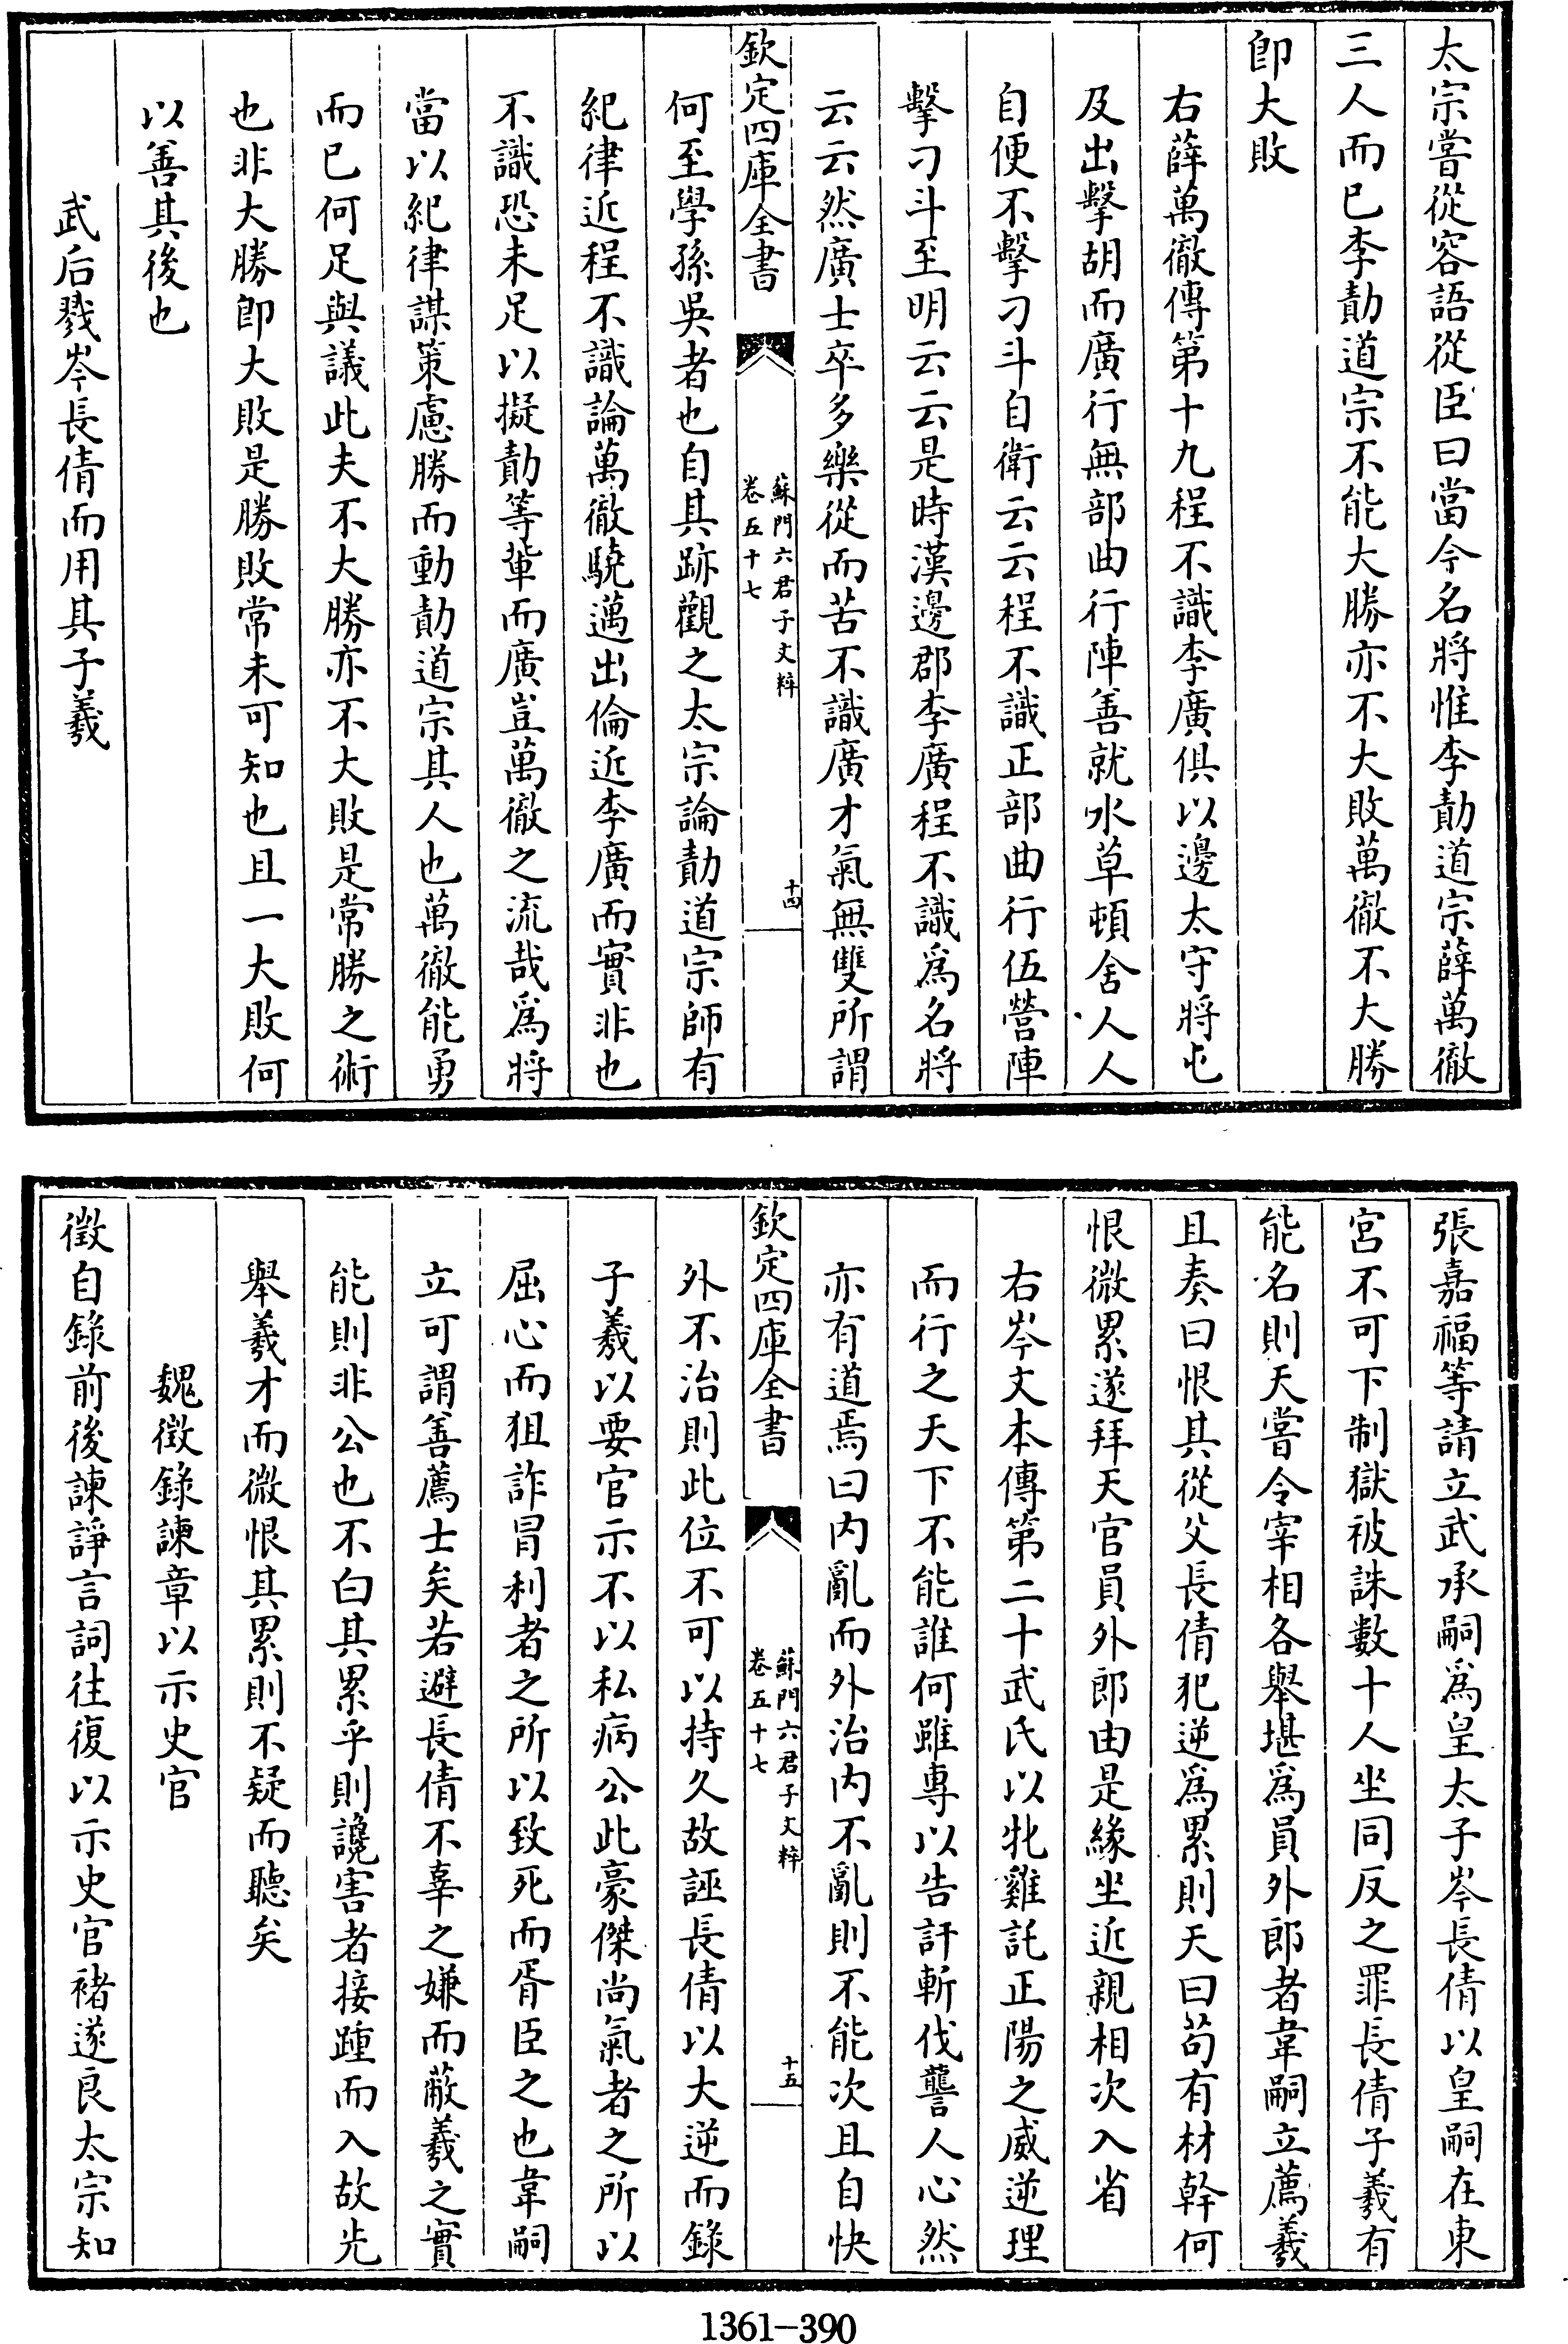 太宗嘗從容語從臣曰當今名將惟李勣道宗薛萬徹
三人而已李勣道宗不能大勝亦不大敗萬徹不大勝
即大敗
右薛萬徹傳第十九程不識李廣俱以邊太守將屯
及出擊胡而廣行無部曲行陣善就水草頓舍人人
自便不擊刁斗自衛云云程不識正部曲行伍營陣
擊刁斗至明云云是時漢邊郡李廣程不識爲名將
云云然廣士卒多樂從而苦不識廣才氣無雙所謂
欽定四庫全書
蘇門六君子文粹
卷五十七
十四
何至學孫吳者也自其跡觀之太宗論勣道宗師有
紀律近程不識論萬徹驍邁出倫近李廣而實非也
不識恐未足以擬勣等輩而廣豈萬徹之流哉爲將
當以紀律謀策慮勝而動勣道宗其人也萬徹能勇
而已何足與議此夫不大勝亦不大敗是常勝之術
也非大勝即大敗是勝敗常未可知也且一大敗何
以善其後也
武后戮岑長倩而用其子羲
張嘉福等請立武承嗣爲皇太子岑長倩以皇嗣在東
宮不可下制獄被誅數十人坐同反之罪長倩子羲有
能名則天嘗令宰相各舉堪爲員外郎者韋嗣立薦羲
且奏曰恨其從父長倩犯逆爲累則天曰茍有材幹何
恨微累遂拜天官員外郎由是緣坐近親相次入省
右岑文本傳第二十武氏以牝雞託正陽之威逆理
而行之天下不能誰何雖專以告訐斬伐讋人心然
亦有道焉曰内亂而外治内不亂則不能次且自快
欽定四庫全書
蘇門六君子文粹
卷五十七
十五
外不治則此位不可以持久故誣長倩以大逆而錄
子羲以要官示不以私病公此豪傑尚氣者之所以
屈心而狙詐冒利者之所以致死而胥臣之也韋嗣
立可謂善薦士矣若避長倩不辜之嫌而蔽羲之實
能則非公也不白其累乎則讒害者接踵而入故先
舉羲才而微恨其累則不疑而聽矣
魏徵錄諫章以示史官
徵自錄前後諫諍言詞往復以示史官褚遂良太宗知
1361-390